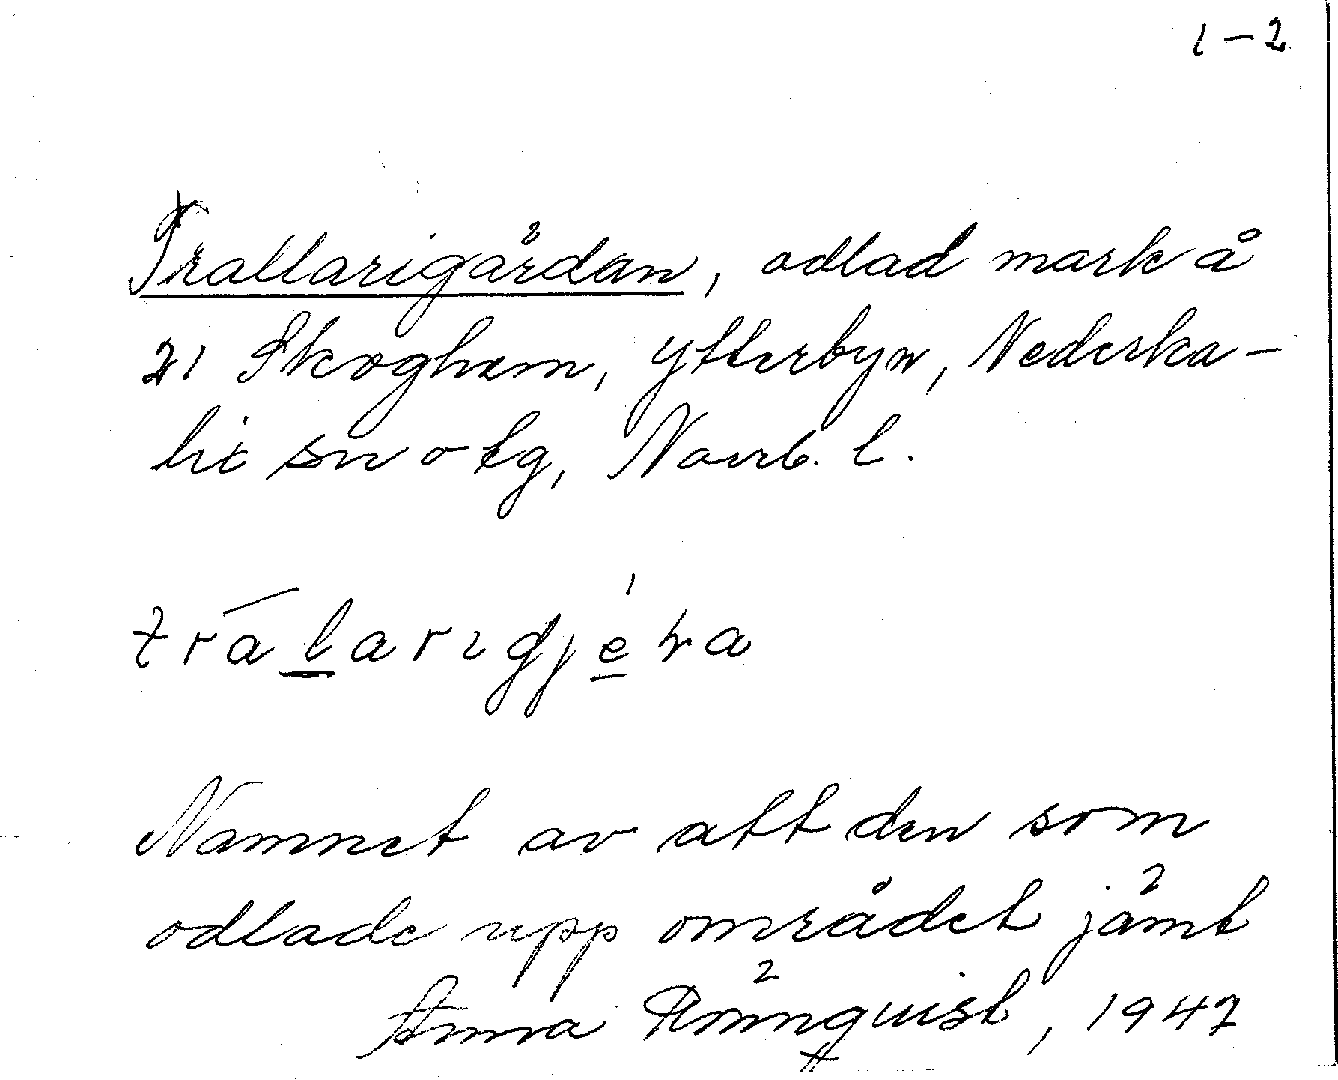 1–2
Trallarigärdan, odlad mark å
21 Skoghem, Ytterbyn, Nederka-
lix sn o tg, Norrb. l.
Namnet av att den som
odlade upp området jämt
Anna Rönnquist, 1947